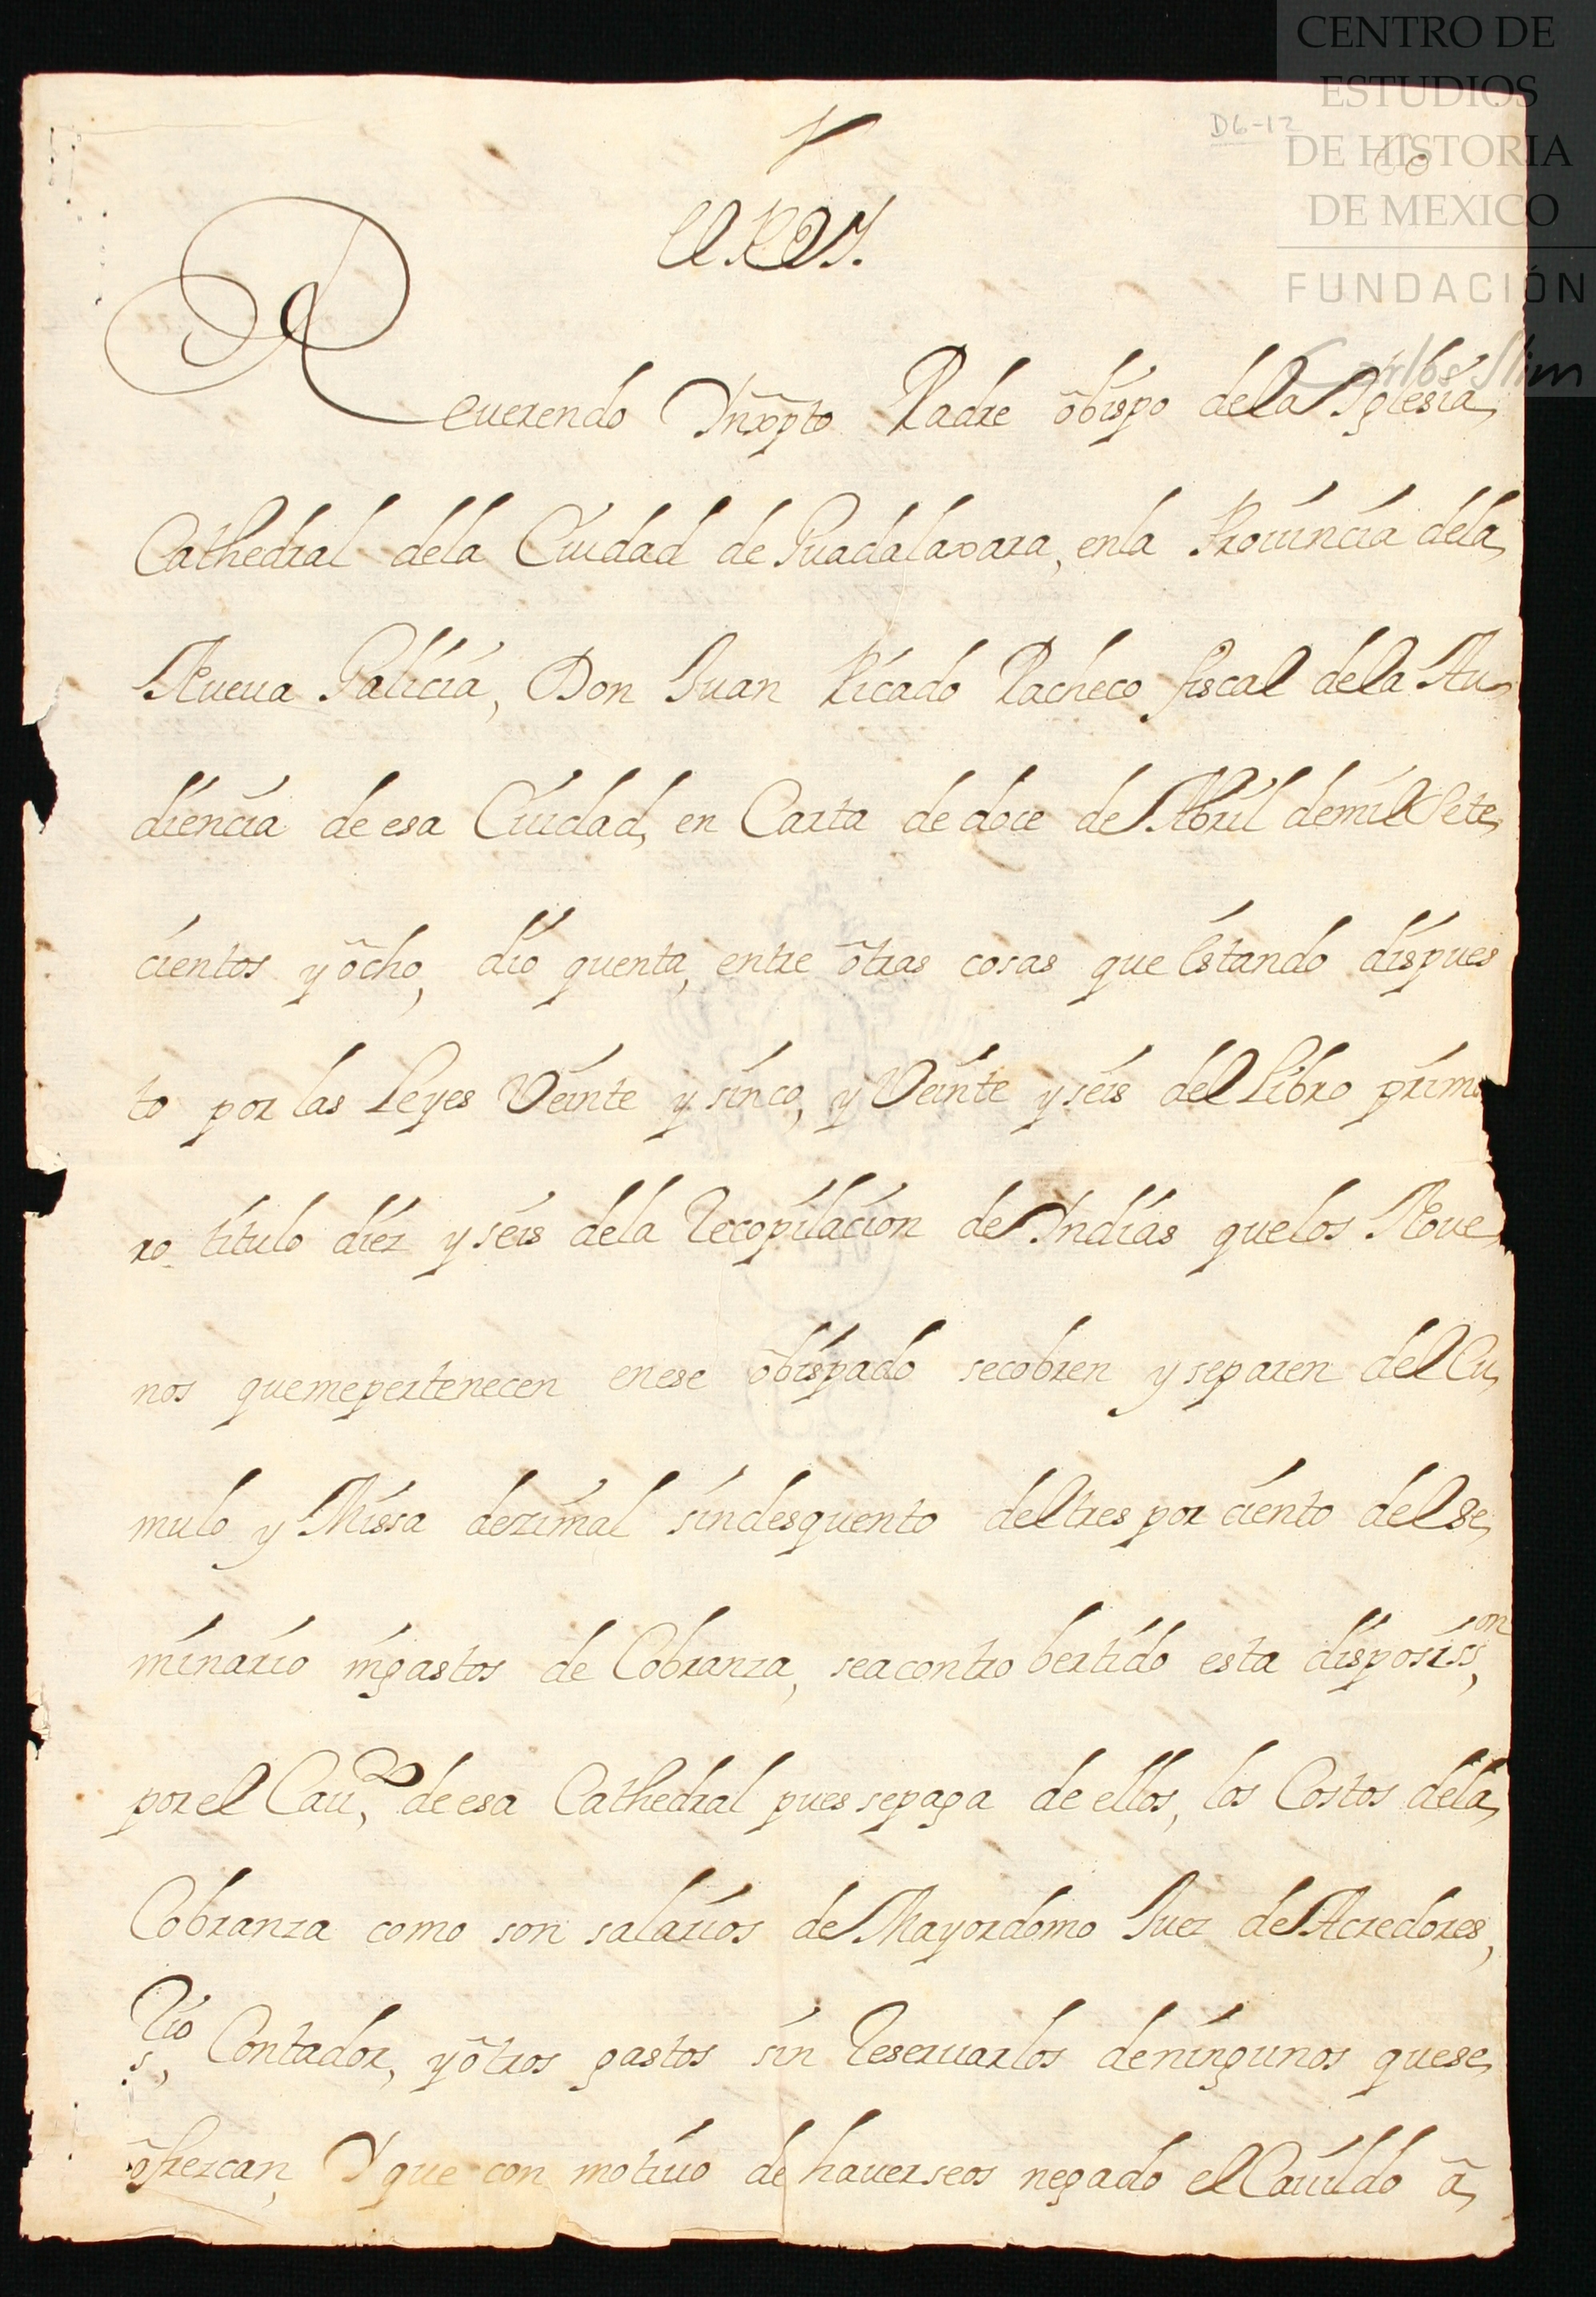 CENTRO DE
ESTUDIOS
DE HISTORIA
DE MEXICO
FUNDACIÓN
Carlos Slim
D6-12
El Rey.
Reuerendo Inxpto Padre obispo dela Iglesia
Cathedral dela Ciudad de Guadalaxara, enla Prouincia dela
Nueua Galicia, Don Juan Picado Pacheco fiscal dela Au
diencia de esa Ciudad, en Carta de doce de Abril demil Sete
cientos y õcho, dio quenta, entre õtras cosas que Estando dispues
to por las Leyes Veinte y sinco, y Veinte y seis del Libro prime
ro titulo diez y seis dela Recopilacion de Indias quelos Noue
nos quemepertenecen enese õbispado secobren y separen del Cu
mulo y Missa dezimal sindesquento deltres por ciento del Se
minario nigastos de Cobranza, seacontro bertido esta disposiss.on,
porel Cau.do, deesa Cathedral pues sepaga de ellos, los Costos dela
Cobranza como son salarios de Mayordomo Juez de Acredores,
Contador, yõtros gastos sin Reseruarlos deningunos quese
õfrezcan, Y que con motiuo de hauerseos negado el Cauildo ã